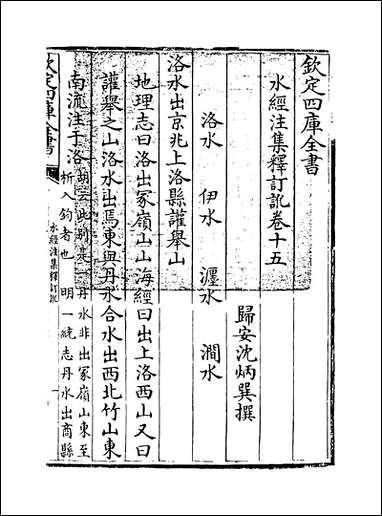 欽定四庫全書
水經注集釋訂訛卷十五
歸安沈炳巽撰
洛水　伊水　瀍水　澗水
洛水出京兆上洛縣讙舉山
地理志曰洛出冢嶺山山海經曰出上洛西山又曰
讙舉之山洛水出焉東與丹水合水出西北竹山東
南流注于洛
胡云此別是一丹水非出冢嶺山東至
析入鈞者也　明一統志丹水出商縣
欽定四庫全書
水經注集釋訂訛
一